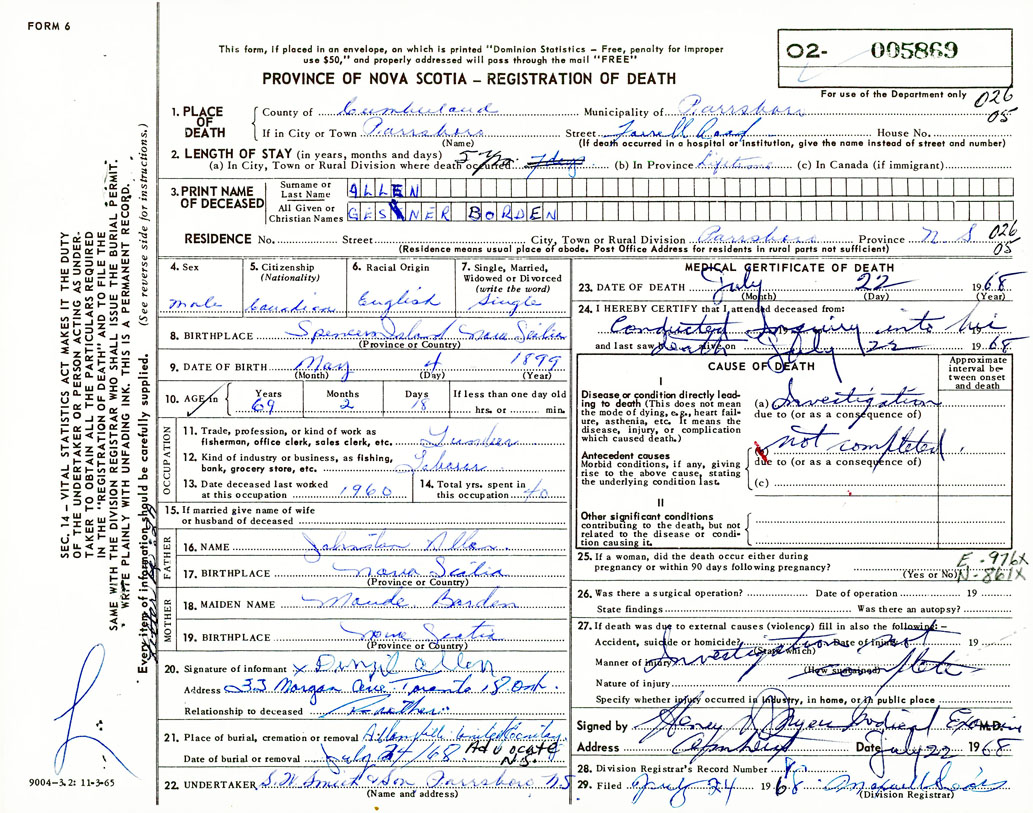 FORM 6
This form, if placed in an envelope, on which is printed "Dominion Statistics – Free, penalty for improper
use $50," and properly addressed will pass through the mail "FREE"
O2- 005869
For use of the Department only 026
05
PROVINCE OF NOVA SCOTIA – REGISTRATION OF DEATH
1. PLACE OF DEATH
County of Cumberland Municipality of Parrsboro
If in City or Town Parrsboro Street Farrell Road House No.
(Name) (If death occurred in a hospital or institution, give the name instead of street and number)
2. LENGTH OF STAY (in years, months and days)
(a) In City, Town or Rural Division where death occurred 5 Yrs (b) In Province Lifetime (c) In Canada (if immigrant)
3. PRINT NAME OF DECEASED
Surname or Last Name ALLEN
All Given or Christian Names GESNER BORDEN
RESIDENCE No. Street City, Town or Rural Division Parrsboro Province N S 026
05
(Residence means usual place of abode. Post Office Address for residents in rural parts not sufficient)
4. Sex
male
5. Citizenship
(Nationality)
Canadian
6. Racial Origin
English
7. Single, Married,
Widowed or Divorced
(write the word)
Single
8. BIRTHPLACE Spencers Island Nova Scotia
(Province or Country)
9. DATE OF BIRTH May 4 1899
(Month) (Day) (Year)
10. AGE in Years Months Days If less than one day old
69 2 18 hrs. or min.
OCCUPATION
11. Trade, profession, or kind of work as
fisherman, office clerk, sales clerk, etc. Lumber
12. Kind of industry or business, as fishing,
bank, grocery store, etc. Laborer
13. Date deceased last worked
at this occupation 1960
14. Total yrs. spent in
this occupation 40
15. If married give name of wife
or husband of deceased
FATHER
16. NAME Johnston Allen
17. BIRTHPLACE Nova Scotia
(Province or Country)
MOTHER
18. MAIDEN NAME Maude Borden
19. BIRTHPLACE Nova Scotia
(Province or Country)
20. Signature of informant x Denzil Allen
Address 33 Morgan Ave. Toronto 18 Ont.
Relationship to deceased Brother
21. Place of burial, cremation or removal
Date of burial or removal July 24/68 Advocate
N.S.
22. UNDERTAKER & Son Parrsboro N.S
(Name and address)
MEDICAL CERTIFICATE OF DEATH
23. DATE OF DEATH July 22 1968
(Month) (Day) (Year)
24. I HEREBY CERTIFY that I attended deceased from:
Conducted Inquiry into his
and last saw alive on death July 22 1968
CAUSE OF DEATH
Approximate
interval be-
tween onset
and death
I
Disease or condition directly lead-
ing to death (This does not mean
the mode of dying, e.g., heart fail-
ure, asthenia, etc. It means the
disease, injury, or complication
which caused death.)
(a) Investigation
due to (or as a consequence of)
Antecedent causes
Morbid conditions, if any, giving
rise to the above cause, stating
the underlying condition last.
(b) not completed.
due to (or as a consequence of)
(c)
II
Other significant conditions
contributing to the death, but not
related to the disease or condi-
tion causing it.
25. If a woman, did the death occur either during
pregnancy or within 90 days following pregnancy?
(Yes or No)
E-976X
N-861X
26. Was there a surgical operation? Date of operation 19
State findings Was there an autopsy?
27. If death was due to external causes (violence) fill in also the following:–
Accident, suicide or homicide? Date of injury 19
(State which)
Manner of injury Investigation not complete
(How sustained)
Nature of injury
Specify whether injury occurred in industry, in home, or in public place
Signed by Medical Examiner M.D.
Address Amherst Date July 22 1968
28. Division Registrar's Record Number
29. Filed July 24 1968
(Division Registrar)
SEC. 14 – VITAL STATISTICS ACT MAKES IT THE DUTY
OF THE UNDERTAKER OR PERSON ACTING AS UNDER-
TAKER TO OBTAIN ALL THE PARTICULARS REQUIRED
IN THE "REGISTRATION OF DEATH" AND TO FILE THE
SAME WITH THE DIVISION REGISTRAR WHO SHALL ISSUE THE BURIAL PERMIT.
WRITE PLAINLY WITH UNFADING INK. THIS IS A PERMANENT RECORD.
Every item of information should be carefully supplied. (See reverse side for instructions.)
9004–3.2: 11-3-65